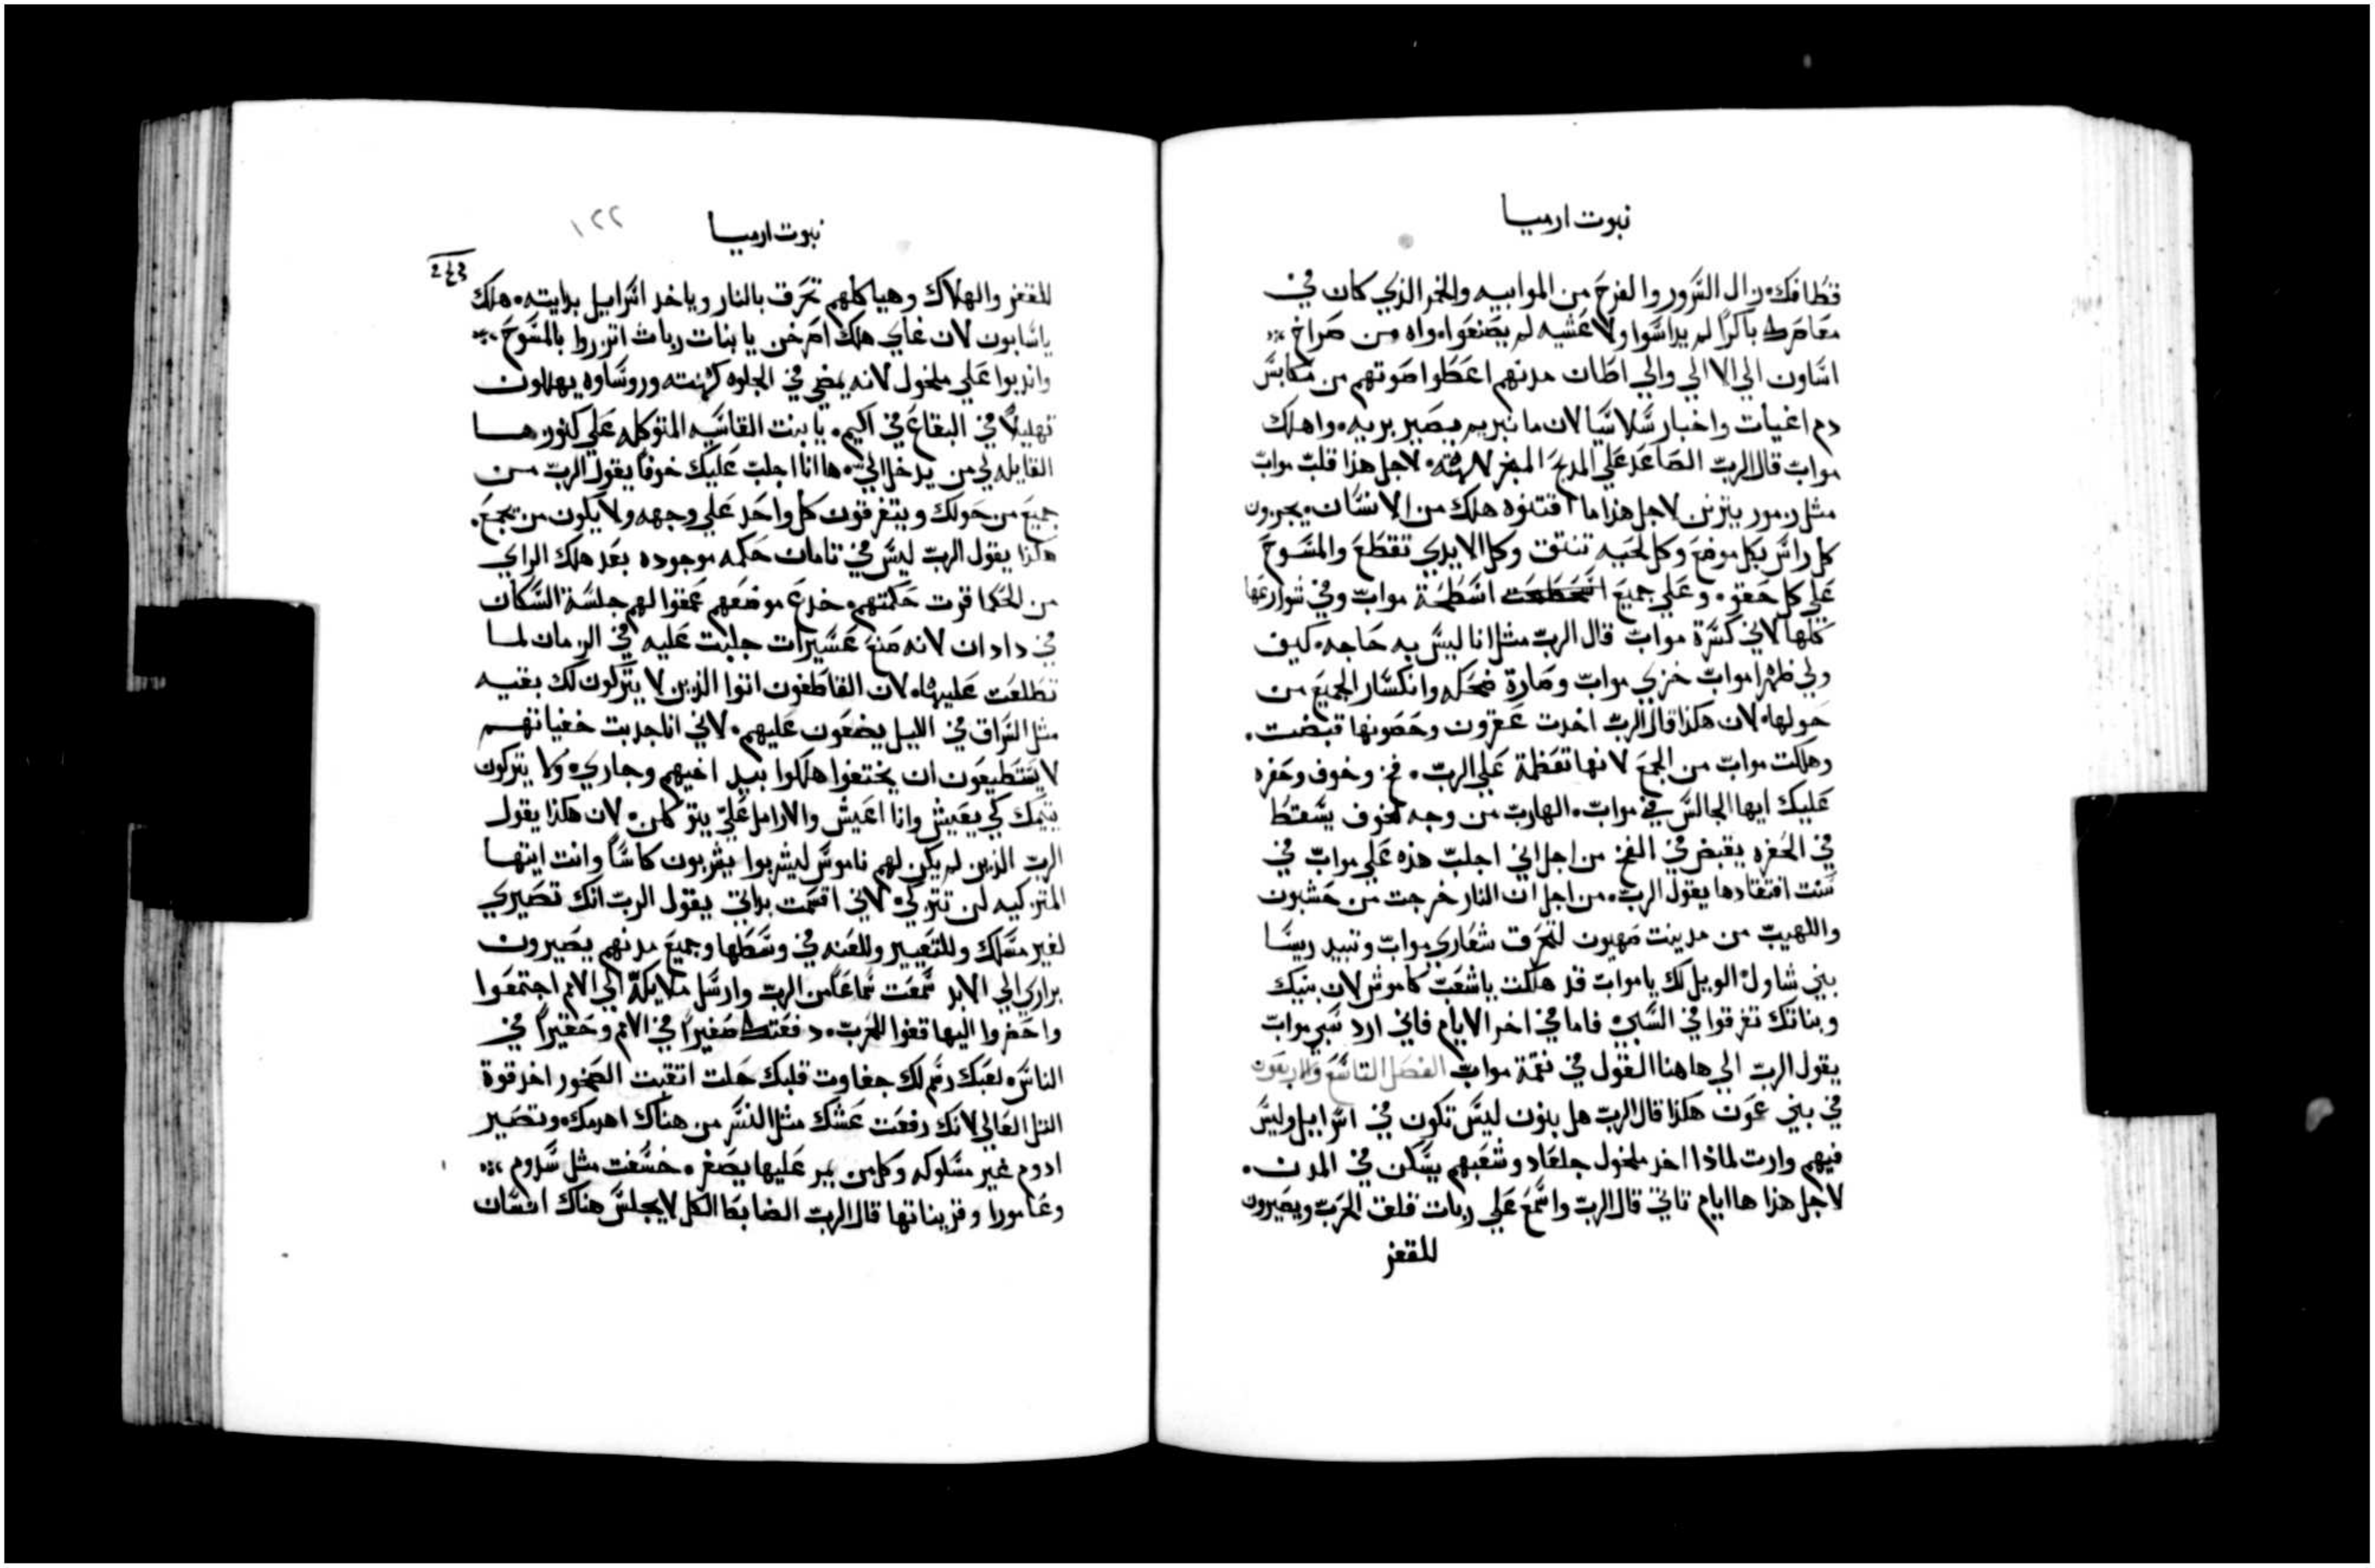 نبوت ارميا
قطافك. زال السرور والفرح من الموابيه والخمر الذي كان في
معاصرك باكرًا لم يداسوا ولا عشيه لم يصنعوا. واه من صراخ
اساون الي الا الي والي اطان مدنهم اعطوا صوتهم من مكابس
دم اغيات واخبار سلاسيا لان ما نبريم يصير بريه. واهلك
مواب قال الرب الصاعد علي المدبح المبخر لالهته. لاجل هذا قلب مواب
مثل زمور يتزنن لاجل هذا ما اقتنوه هلك من الانسان. يجزون
كل راس بكل موضع وكل لحيه تنتتف وكل الايدي تقطع والمسوح
علي كل حقو. وعلي جميع اسطحة مواب وفي شوارعها
كلها لاني كسرة مواب قال الرب مثل انا ليس به حاجه. كيف
ولي ظهرا مواب خزي مواب وصارة ضحكه وانكسار الجميع من
حولها. لان هكذا قال الرب اخدت عقرون وحصونها قبضت.
وهلكت مواب من الجمع لانها تعظمة علي الرب. فخ وخوف وحفره
عليك ايها الجالس في مواب. الهارب من وجه الخوف يسقط
في الحفره يقبض في الفخ من اجل اني اجلب هذه علي مواب في
سنت افتقادها يقول الرب. من اجل ان النار خرجت من حشبون
واللهيب من مدينت صهيون لتحرق شعاري مواب وتبيد ريسا
بني شاول. الويل لك يا مواب قد هلكت يا شعب كاموش لان بنيك
وبناتك تفرقوا في السبي. فاما في اخر الايام فاني ارد سبي مواب
يقول الرب الي هاهنا القول في نقمة مواب الفصل التاسع والاربعون
في بني عمون هكذا قال الرب هل بنون ليس تكون في اسراييل وليس
فيهم وارت لماذا اخد ملخول جلعاد وشعبهم يسكن في المدن.
لاجل هذا ها ايام تاتي قال الرب واسمع علي ربات قلق الحرب ويصيرون
للقفز
نبوت ارميا
١٢٢
243
للقفز والهلاك وهياكلهم تحرق بالنار وياخد اسراييل برايته. هلك
ياسابون لان غاي هلك اصرخن يا بنات ربات اتزروا بالمسوح
واندبوا علي ملخول لانه يمضي في الجلوه كهنته وروساوه يهللون
تهليلاً في البقاع في اكيم. يا بنت القاسيه المتوكله علي كنوزها
القايله لي من يدخل الي. ها انا اجلب عليك خوفًا يقول الرب من
جميع من حولك ويتفرقون كل واحد علي وجهه ولا يكون من يجمع.
هكذا يقول الرب ليس في تامان حكمه موجوده بعد هلك الراي
من الحكما فزت حكمتهم. خدع موضعهم عمقوا لهم جلسة السكان
في دادان لانه صنع عسيرات جلبت عليه في الزمان لما
تطلعت عليها. لان القاطفون اتوا الذين لا يتركون لك بقيه
مثل السراق في الليل يضعون عليهم. لاني انا جدبت خفياتهم
لا يستطيعون ان يختفوا هلكوا بيد اخيهم وجاري. ولا يتركون
يتيمك كي يعيش وانا اعيش والارامل علي يتوكلن. لان هكذا يقول
الرب الذين لم يكن لهم ناموس ليشربوا يشربون كاسًا وانت ايتها
المتزكيه لن تتزكي. لاني اقسمت بداتي يقول الرب انك تصيري
لغير مسلك وللتعيير وللعنه في وسطها وجميع مدنهم يصيرون
براري الي الابد سمعت سماعًا من الرب وارسل ملايكة الي الامم اجتمعوا
واحضروا اليها قفوا للحرب. دفعتك صغيرًا في الامم وحقيرًا في
الناس. لعبك رسم لك جفاوت قلبك حلت اتقبت الصخور اخد قوة
التل العالي لانك رفعت عشك مثل النسر من هناك اهدمك. وتصير
ادوم غير مسلوكه وكل من يمر عليها يصفر. خسفت مثل سدوم
وعامورا وقريناتها قال الرب الضابط الكل لا يجلس هناك انسان